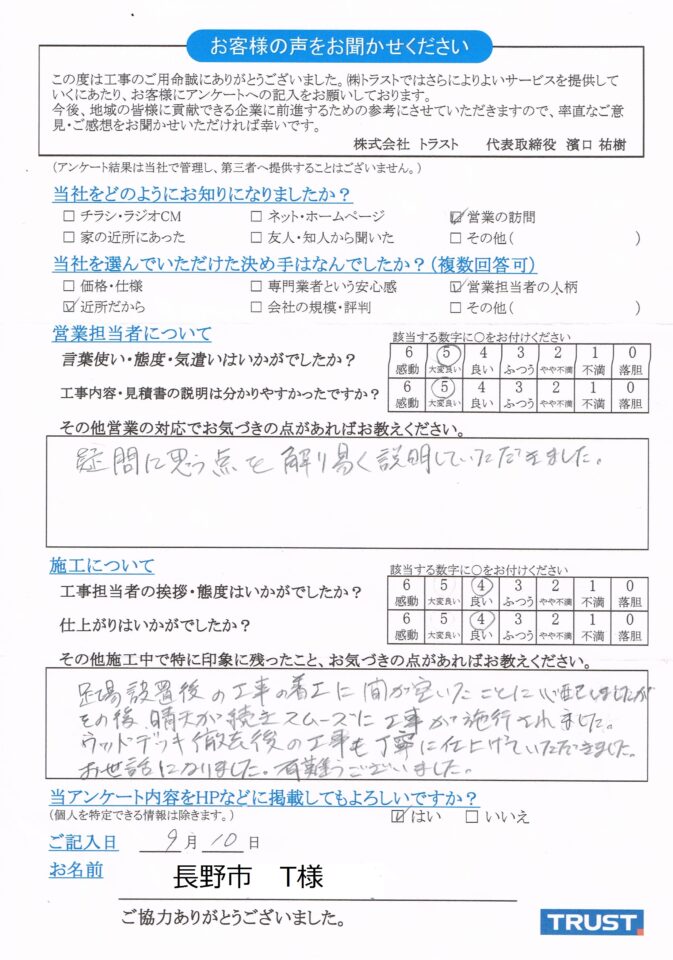 お客様の声をお聞かせください
この度は工事のご用命誠にありがとうございました。㈱トラストではさらによりよいサービスを提供して
いくにあたり、お客様にアンケートへの記入をお願いしております。
今後、地域の皆様に貢献できる企業に前進するための参考にさせていただきますので、率直なご意
見・ご感想をお聞かせいただければ幸いです。
株式会社 トラスト 代表取締役 濱口 祐樹
(アンケート結果は当社で管理し、第三者へ提供することはございません。)
当社をどのようにお知りになりましたか？
☐ チラシ・ラジオCM ☐ ネット・ホームページ ☑ 営業の訪問
☐ 家の近所にあった ☐ 友人・知人から聞いた ☐ その他( )
当社を選んでいただけた決め手はなんでしたか？(複数回答可)
☐ 価格・仕様 ☐ 専門業者という安心感 ☑ 営業担当者の人柄
☑ 近所だから ☐ 会社の規模・評判 ☐ その他( )
営業担当者について
該当する数字に○をお付けください
言葉使い・態度・気遣いはいかがでしたか？
6 5 4 3 2 1 0
感動 大変良い 良い ふつう やや不満 不満 落胆
工事内容・見積書の説明は分かりやすかったですか？
6 5 4 3 2 1 0
感動 大変良い 良い ふつう やや不満 不満 落胆
その他営業の対応でお気づきの点があればお教えください。
疑問に思う点を解り易く説明していただきました。
施工について
該当する数字に○をお付けください
工事担当者の挨拶・態度はいかがでしたか？
6 5 4 3 2 1 0
感動 大変良い 良い ふつう やや不満 不満 落胆
仕上がりはいかがでしたか？
6 5 4 3 2 1 0
感動 大変良い 良い ふつう やや不満 不満 落胆
その他施工中で特に印象に残ったこと、お気づきの点があればお教えください。
足場設置後の工事の着工に間が空いたことに心配しましたが
その後晴天が続きスムーズに工事が施行されました。
ウッドデッキ徹去後の工事も丁寧に仕上げていただきました。
お世話になりました。有難うございました。
当アンケート内容をHPなどに掲載してもよろしいですか？
(個人を特定できる情報は除きます。)
☑ はい ☐ いいえ
ご記入日 9 月 10 日
お名前 長野市 T様
ご協力ありがとうございました。
TRUST.